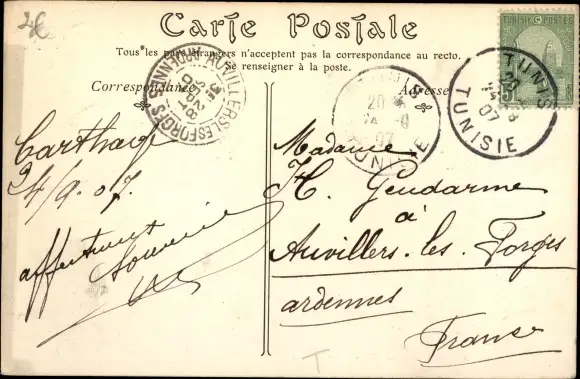 Carte Postale
Tous les pays étrangers n'acceptent pas la correspondance au recto.
Se renseigner à la poste.
Correspondance
Adresse
TUNISIE POSTES
5
TUNIS
20
07
TUNISIE
20
07
AUVILLERS-LES-FORGES
ARDENNES
Carthage
24/9.07.
affectueux
Souvenir
Madame
H. Gendarme
à
Auvillers-les-Forges
ardennes
France
T